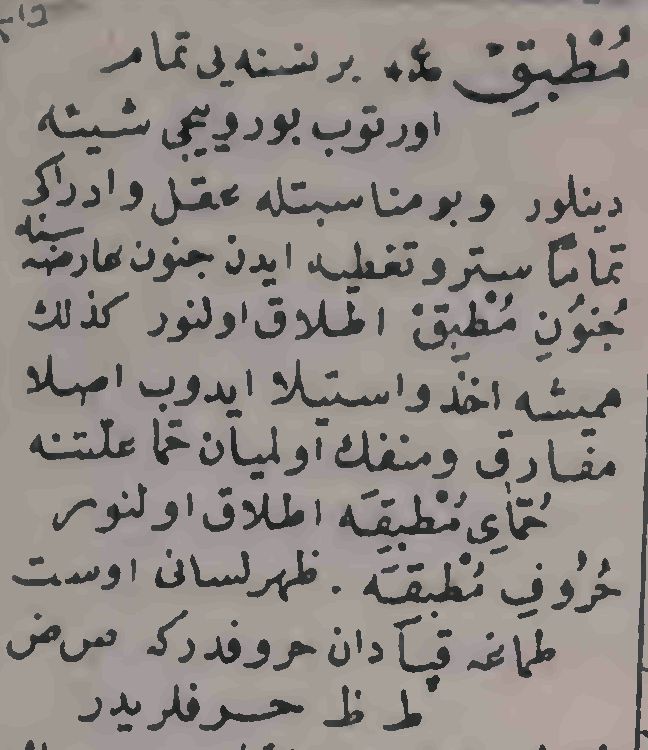 مُطْبِقْ بر نسنه يى تمام
اورتوب بورويجى شيئه
دينلور وبو مناسبتله عقل وادراكى
تماماً ستر وتغطيه ايدن جنون عارضه سنه
جُنُونِ مُطْبِقْ اطلاق اولنور كذلك
هميشه اخذ واستيلا ايدوب اصلا
مفارق ومنفك اولميان حمّا علّتنه
حُمَّاىِ مُطْبِقَه اطلاق اولنور
حُرُوفِ مُطْبِقَه . ظهر لسانى اوست
طماغه قپادان حروفدركه ص ض
ط ظ حرفلريدر